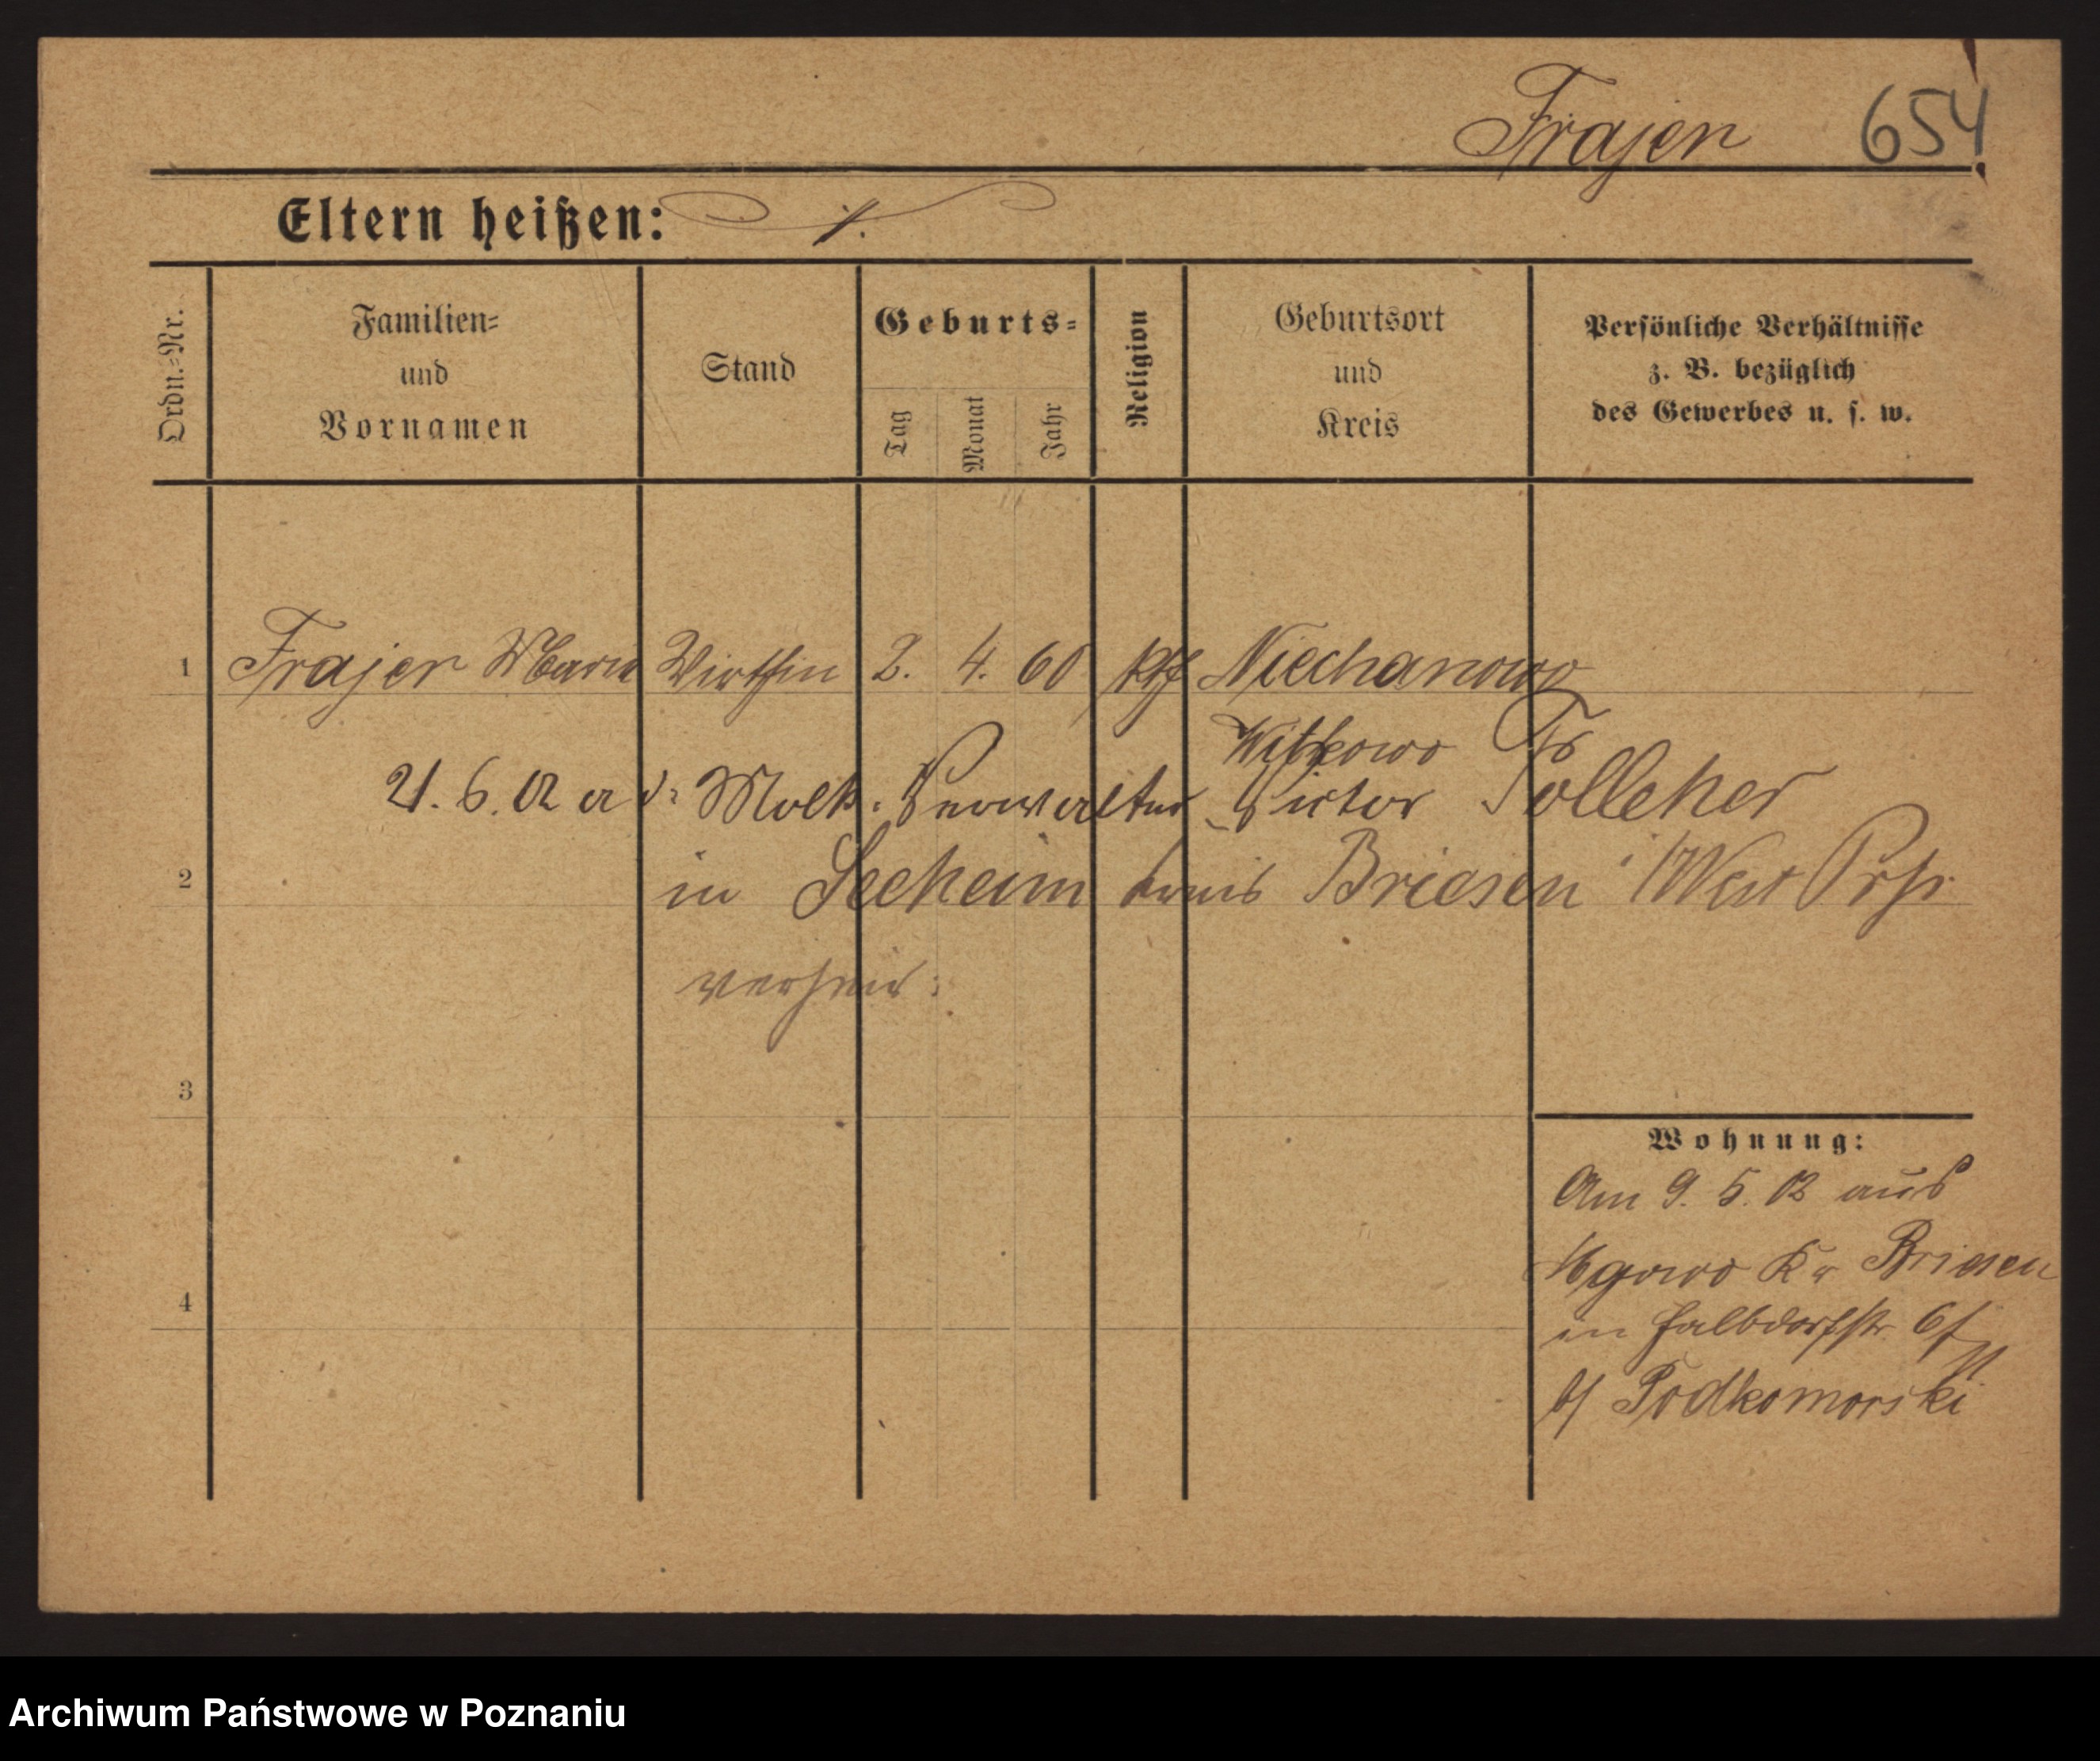 Frajer 654
Eltern heißen: ./.
Ordn.-Nr.
Familien-
und
Vornamen
Stand
Geburts-
Tag
Monat
Jahr
Religion
Geburtsort
und
Kreis
Persönliche Verhältnisse
z. B. bezüglich
des Gewerbes u. s. w.
1 Frajer Maria Wirthin 2. 4. 60 kth Niechanowo
Witkowo
21. 6. 02 a d. Molk. Verwalter Victor Tolleher
2 in Seeheim Kreis Briesen West Prß.
verheir:
3
4
Wohnung:
Am 9. 5. 02 aus
Kr Briesen
in Halbdorfstr 6/
b/ Podkomorski
Archiwum Państwowe w Poznaniu